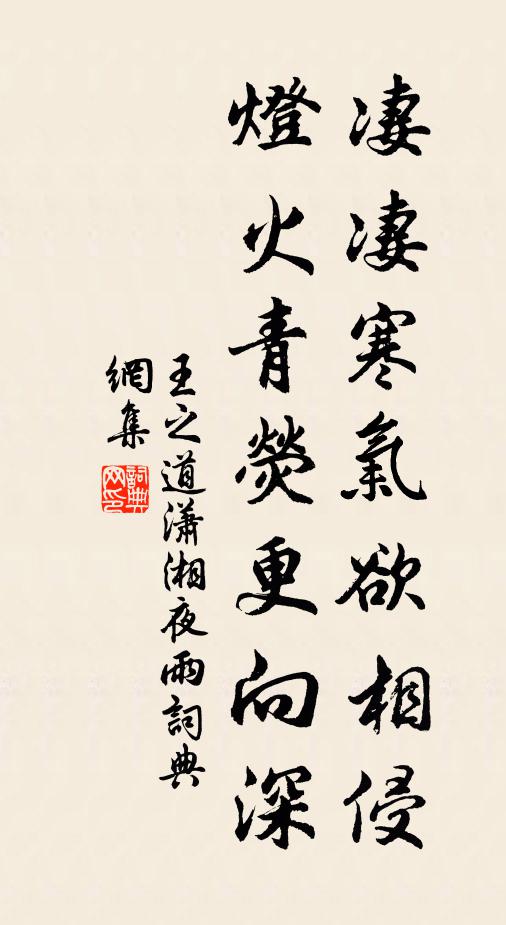 凄凄寒氣欲相侵
燈火青熒更向深
王之道瀟湘夜雨詞典
網集
詞典
网印